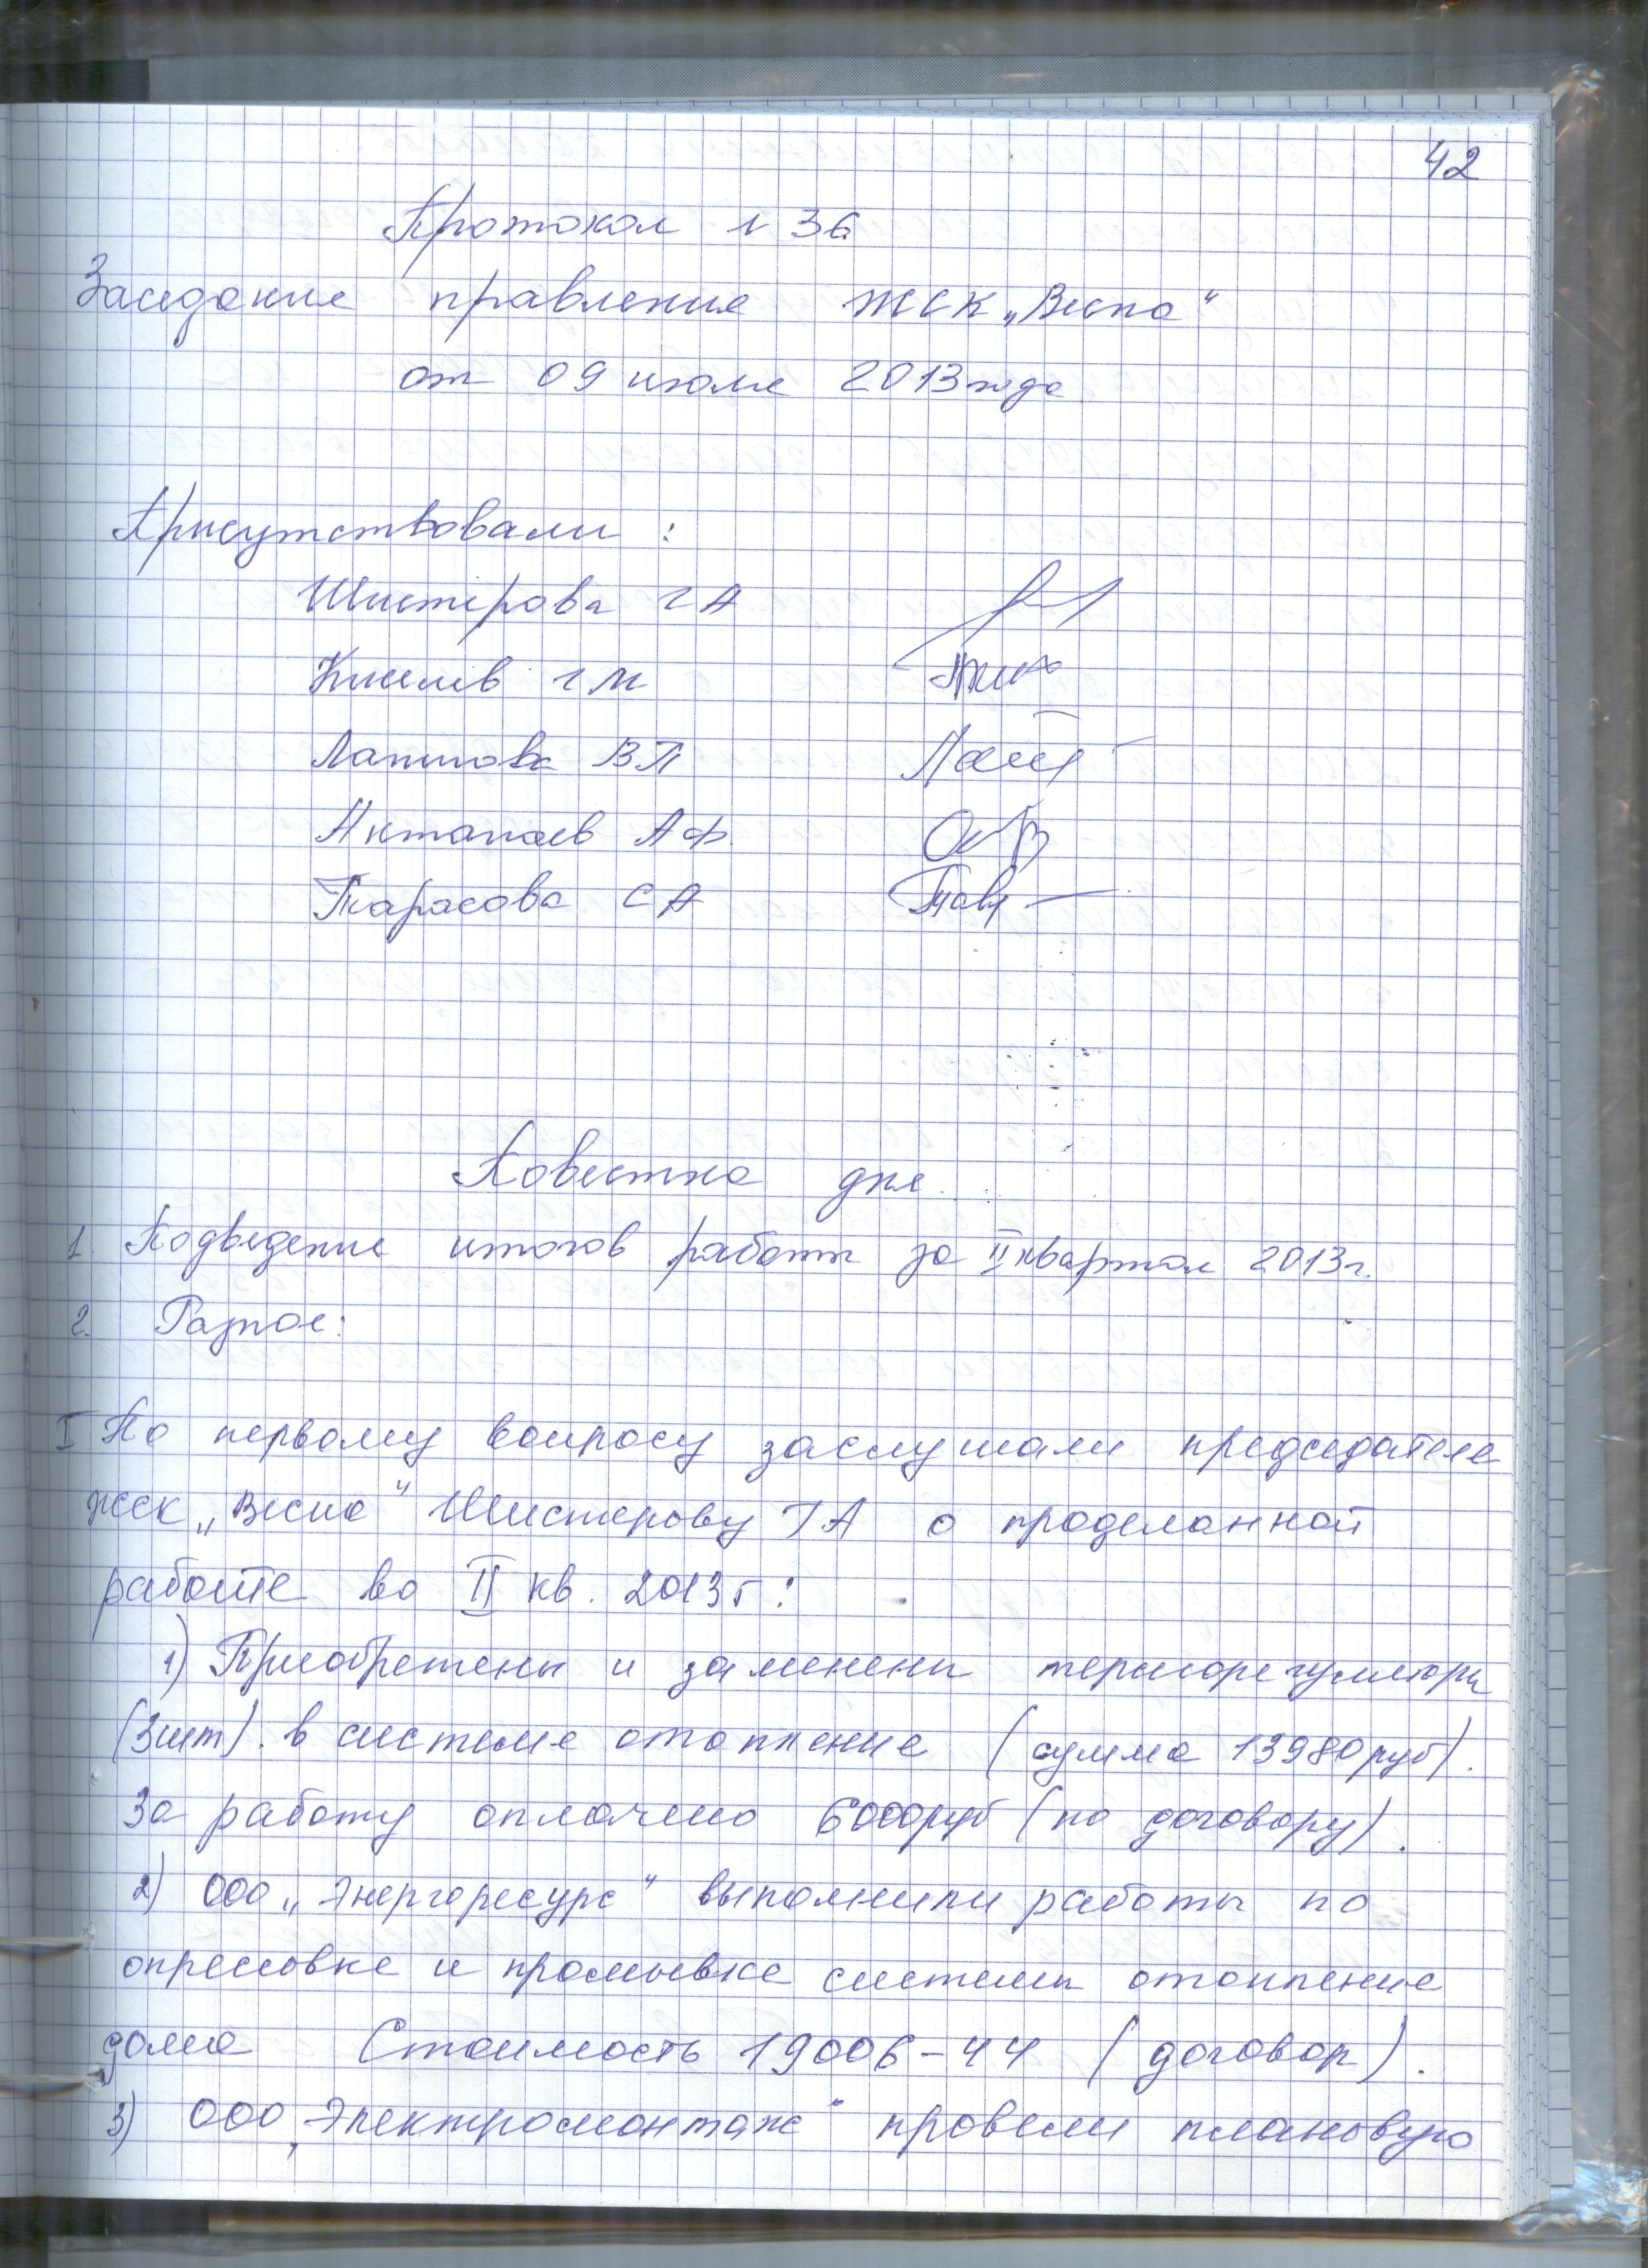 42
Протокол N 36
Заседание правления ЖСК „Весна“
от 09 июля 2013 года
Присутствовали:
Шистерова Г А
Киселев Г М
Лапшова В П
Актанаев А Ф.
Тарасова С А
Повестка дня
1. Подведение итогов работы за II квартал 2013г.
2. Разное:
I По первому вопросу заслушали председателя
ЖСК „Весна“ Шистерову ГА о проделанной
работе во II кв. 2013г:
1) Приобретены и заменены терморегуляторы
(3шт). в системе отопления (сумма 13980руб).
За работу оплачено 6000руб (по договору).
2) ООО „Энергоресурс“ выполнили работы по
опрессовке и промывке системы отопления
дома Стоимость 19006-44 (договор).
3) ООО „Электромонтаж“ провели плановую